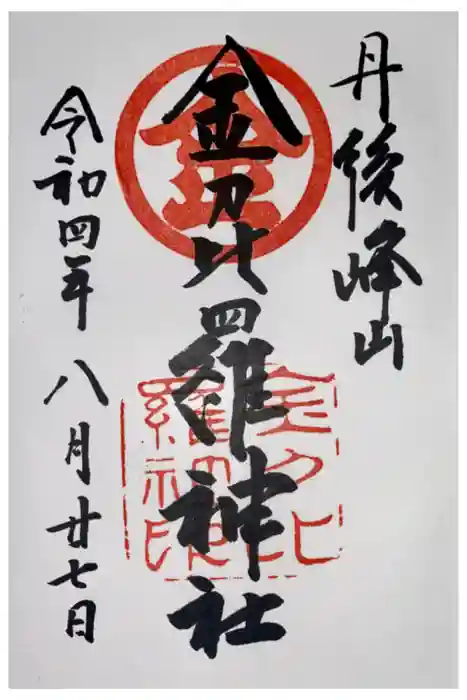 丹後峰山
金刀比羅神社
令和四年 八月廿七日
金
金刀比
羅神社
印